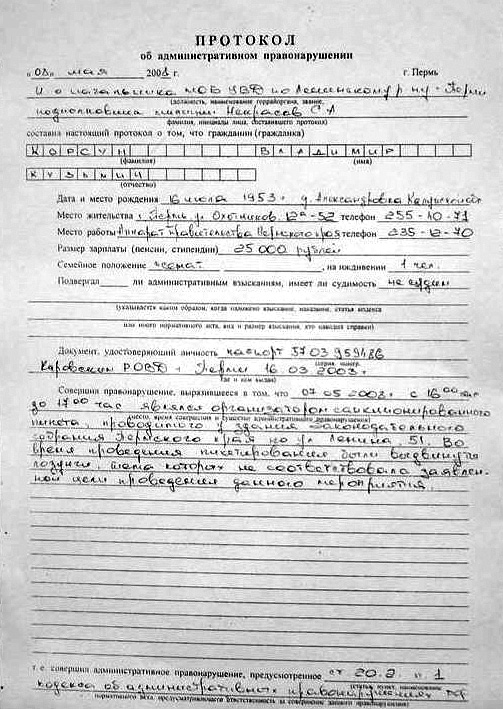 ПРОТОКОЛ
об административном правонарушении
"08" мая 2008 г. г. Пермь
И о начальника МОБ УВД по Ленинскому р-ну г. Перми
(должность, наименование горрайоргана, звание,
подполковник милиции Некрасов С А
фамилия, инициалы лица, составившего протокол)
составил настоящий протокол о том, что гражданин (гражданка)
КОРСУН ВЛАДИМИР
(фамилия) (имя)
КУЗЬМИЧ
(отчество)
Дата и место рождения 16 июля 1953 г д. Александровка
Место жительства г Пермь ул Охотников, 12а-52 телефон 255-40-71
Место работы Аппарат правительства Пермского края телефон 235-12-70
Размер зарплаты (пенсии, стипендии) 25 000 рублей
Семейное положение женат, на иждивении 1 чел.
Подвергал ли административным взысканиям, имеет ли судимость не судим
(указывается каким образом, когда наложено взыскание, наказание, статья кодекса
или иного нормативного акта, вид и размер взыскания, кто наводил справки)
Документ, удостоверяющий личность паспорт 5703 959486
(серия, номер,
Кировским РОВД г Перми 16.03 2003 г.
где и кем выдан)
Совершил правонарушение, выразившееся в том, что 07 05 2008 г. с 16 00 час
до 17 00 час являлся организатором санкционированного
(место, время совершения и существо административного правонарушения)
пикета, проводимого у здания законодательного
собрания Пермского края по ул Ленина, 51. Во
время проведения пикетирования были выдвинуты
лозунги, тема которых не соответствовала заявлен-
ной цели проведения данного мероприятия.
т. е. совершил административное правонарушение, предусмотренное ст 20.2 ч 1
(статья, пункт, наименование
кодекса об административных правонарушениях РФ
нормативного акта, предусматривающего ответственность за совершение данного правонарушения)